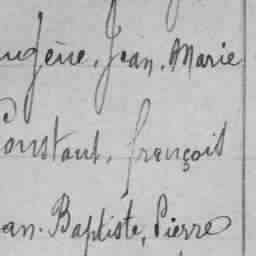 ugène, Jean. Marie
Constant, françois
an. Baptiste, Pierre